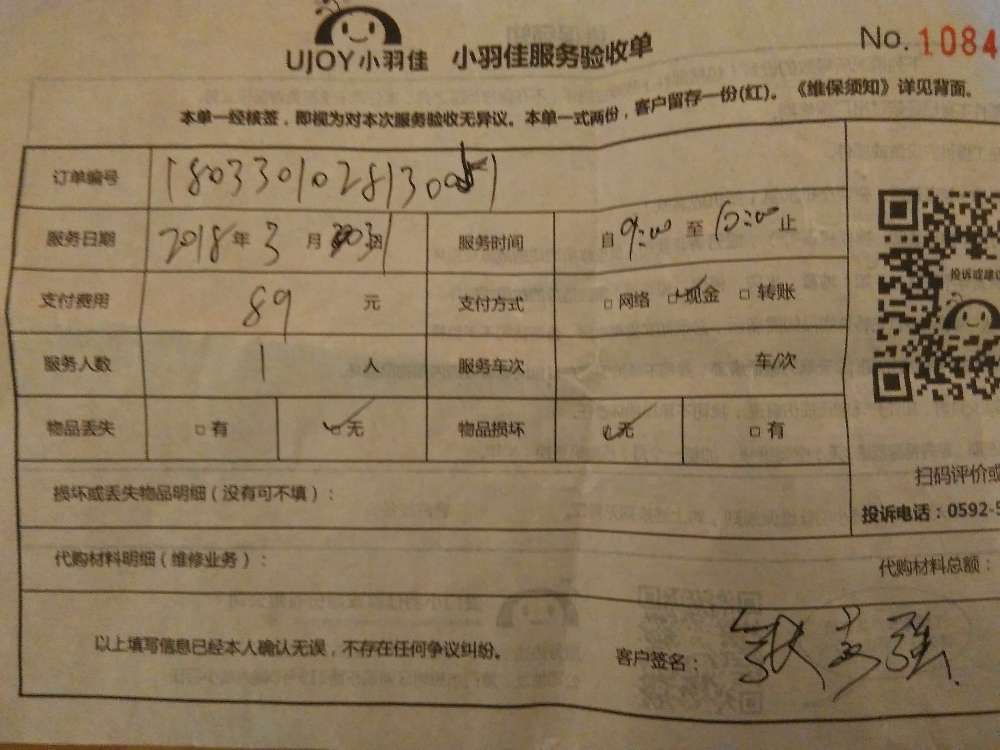 UJOY小羽佳 小羽佳服务验收单 No. 1084
本单一经核签，即视为对本次服务验收无异议。本单一式两份，客户留存一份(红)。《维保须知》详见背面。
订单编号
服务日期 2018年3月 服务时间 自9:00至10:00止
支付费用 89 元 支付方式 □网络 □现金 □转账
服务人数 1 人 服务车次 车/次
物品丢失 □有 □无 物品损坏 □无 □有
投诉或建
扫码评价或
损坏或丢失物品明细（没有可不填）：
投诉电话：0592-5
代购材料明细（维修业务）： 代购材料总额：
以上填写信息已经本人确认无误，不存在任何争议纠纷。 客户签名：